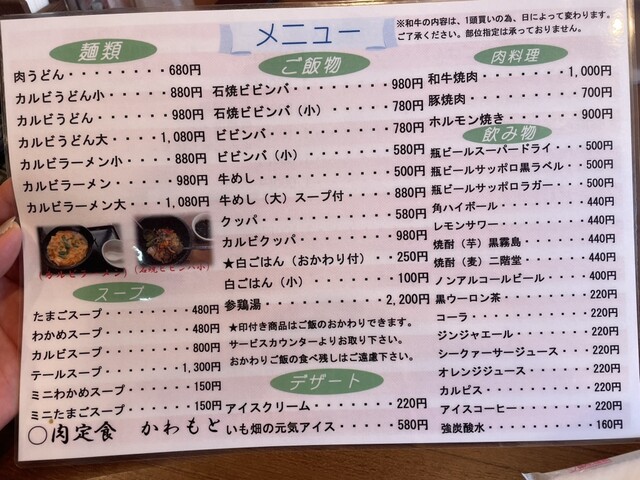 メニュー
※和牛の内容は、1頭買いの為、日によって変わります。
ご了承ください。部位指定は承っておりません。
麺類
肉うどん・・・・・・・・680円
カルビうどん小・・・・・880円
カルビうどん・・・・・・980円
カルビうどん大・・・・1,080円
カルビラーメン小・・・・880円
カルビラーメン・・・・・980円
カルビラーメン大・・・1,080円
(石焼ビビンバ小)
スープ
たまごスープ・・・・・・・480円
わかめスープ・・・・・・・480円
カルビスープ・・・・・・・800円
テールスープ・・・・・・1,300円
ミニわかめスープ・・・・・150円
ミニたまごスープ・・・・・150円
〇肉定食 かわもと
ご飯物
石焼ビビンバ・・・・・・・・980円
石焼ビビンバ(小)・・・・・780円
ビビンバ・・・・・・・・・・780円
ビビンバ(小)・・・・・・・580円
牛めし・・・・・・・・・・・500円
牛めし(大)スープ付・・・・880円
クッパ・・・・・・・・・・・580円
カルビクッパ・・・・・・・・980円
★白ごはん(おかわり付)・・・250円
白ごはん(小)・・・・・・・100円
参鶏湯・・・・・・・・・・2,200円
★印付き商品はご飯のおかわりできます。
サービスカウンターよりお取り下さい。
おかわりご飯の食べ残しはご遠慮下さい。
デザート
アイスクリーム・・・・・・・220円
いも畑の元気アイス・・・・・580円
肉料理
和牛焼肉・・・・・・・・1,000円
豚焼肉・・・・・・・・・・700円
ホルモン焼き・・・・・・・900円
飲み物
瓶ビールスーパードライ・・・500円
瓶ビールサッポロ黒ラベル・・500円
瓶ビールサッポロラガー・・・500円
角ハイボール・・・・・・・・440円
レモンサワー・・・・・・・・440円
焼酎(芋)黒霧島・・・・・・440円
焼酎(麦)二階堂・・・・・・440円
ノンアルコールビール・・・・400円
黒ウーロン茶・・・・・・・・220円
コーラ・・・・・・・・・・・220円
ジンジャエール・・・・・・・220円
シークァーサージュース・・・220円
オレンジジュース・・・・・・220円
カルピス・・・・・・・・・・220円
アイスコーヒー・・・・・・・220円
強炭酸水・・・・・・・・・・160円